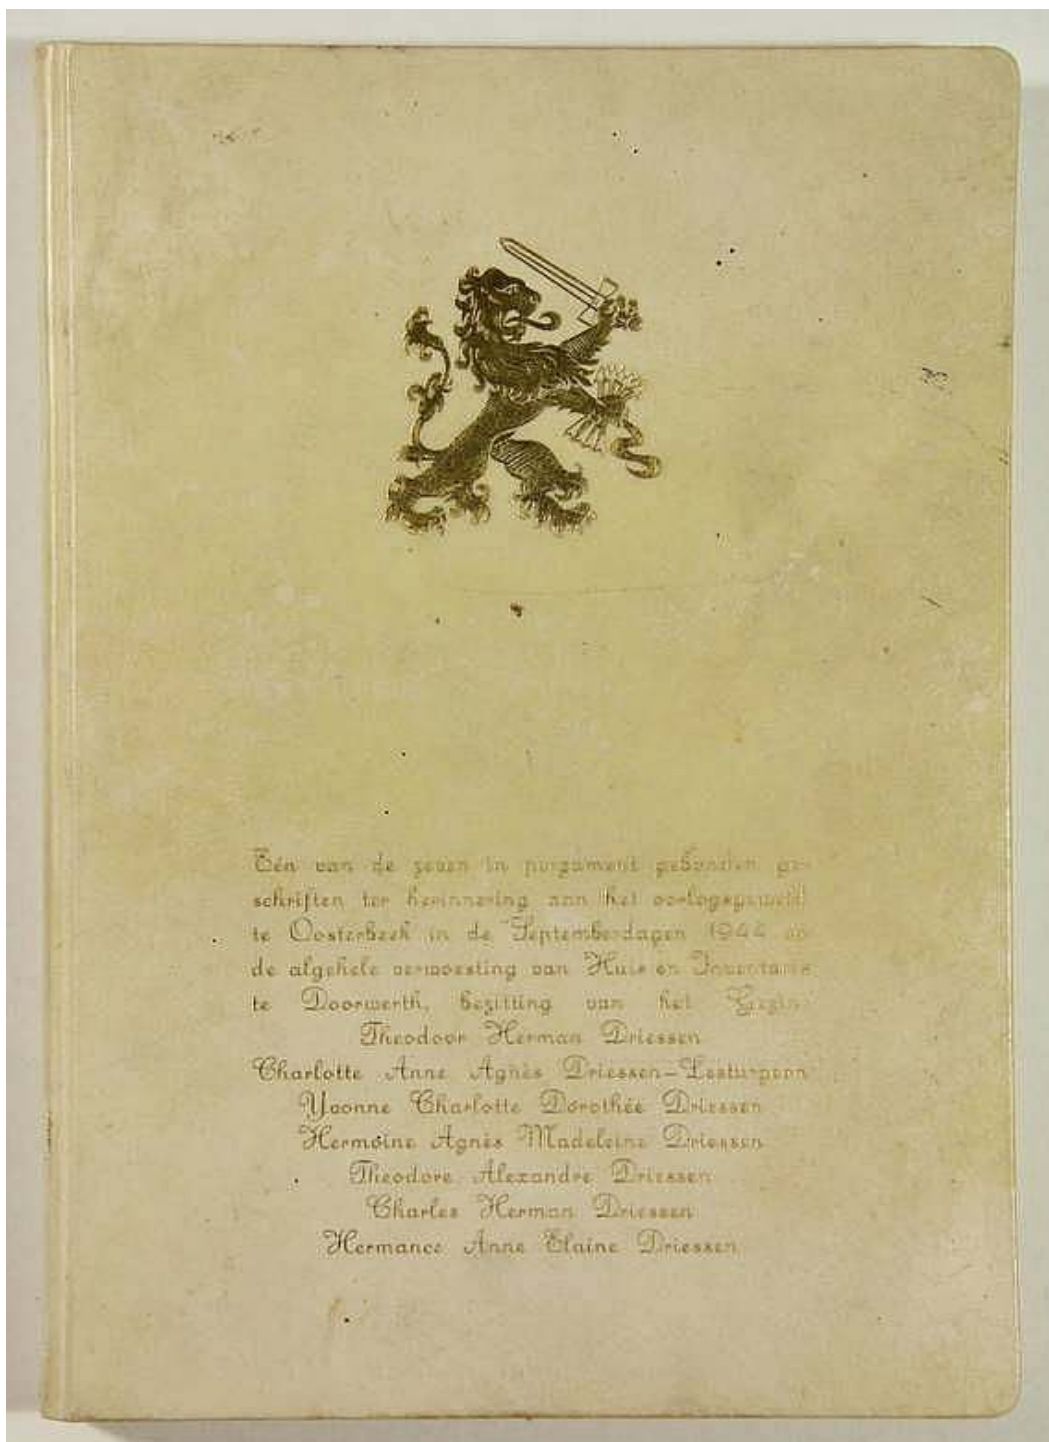 Eén van de zeven in pergament gebonden ge-
schriften ter herinnering aan het oorlogsgeweld
te Oosterbeek in de Septemberdagen 1944 en
de algehele verwoesting van Huis en Inventaris
te Doorwerth, bezitting van het Gezin:
Theodoor Herman Driessen
Charlotte Anne Agnès Driessen-Lesturgeon
Yvonne Charlotte Dorothée Driessen
Hermóine Agnès Madeleine Driessen
Theodore Alexandre Driessen
Charles Herman Driessen
Hermance Anne Elaine Driessen